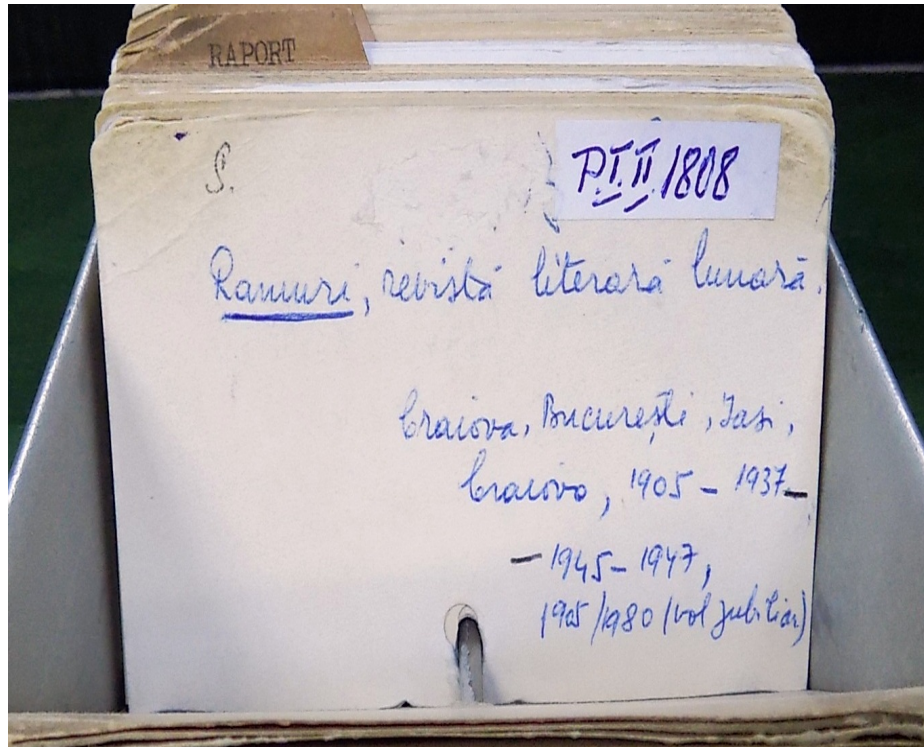 RAPORT
S.
P.I.II 1808
Ramuri, revistă literară lunară.
Craiova, București, Iasi,
Craiova, 1905 - 1937 -
- 1945 - 1947,
1905/1980 (vol jubiliar)